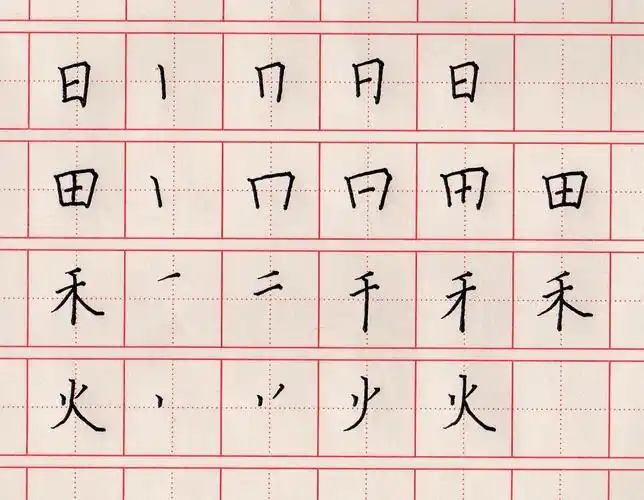 日 丨 冂 日 日
田 丨 冂 日 田 田
禾 一 二 千 禾 禾
火 丶 丷 少 火